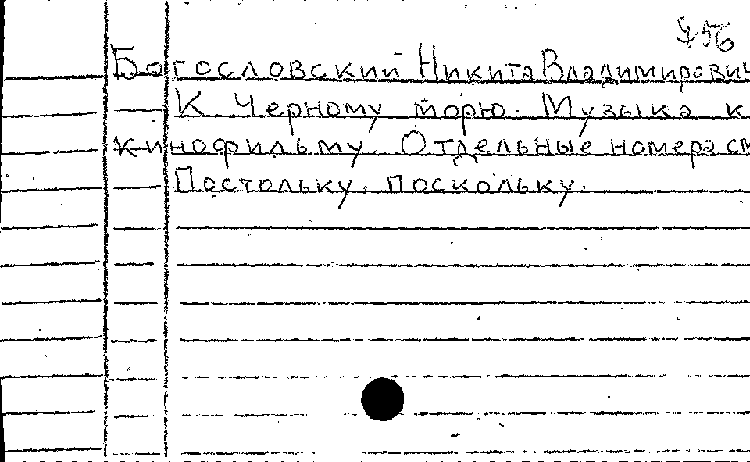 756
Богословский Никита Владимирович
К Черному морю. Музыка к
кинофильму. Отдельные номера см
Постольку, поскольку.